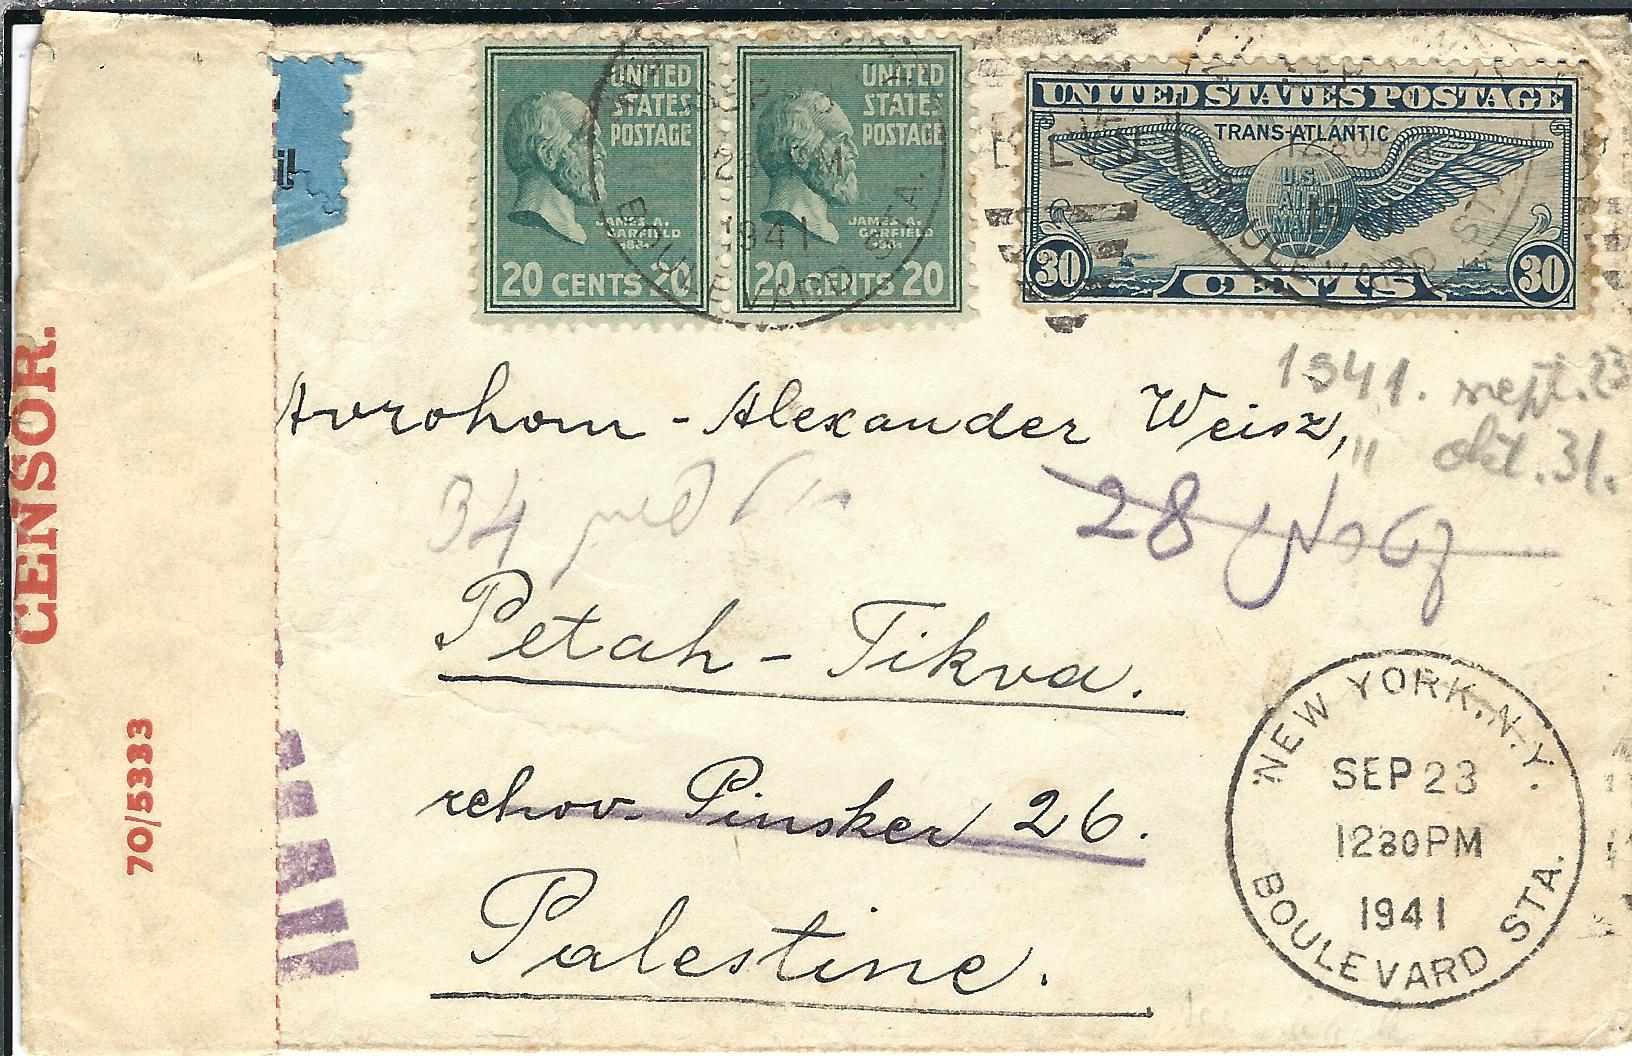 CENSOR.
70/5383
il
UNITED
STATES
POSTAGE
JAMES A.
GARFIELD
1881
20 CENTS 20
UNITED
STATES
POSTAGE
JAMES A.
GARFIELD
1881
20 CENTS 20
1941
BOULEVARD STA.
UNITED STATES POSTAGE
TRANS-ATLANTIC
U.S.
AIR
MAIL
30 CENTS 30
BLVD
BOULEVARD STA.
1941. sept. 23
" okt. 31.
Avrohom - Alexander Weisz,
34
28
Petah - Tikva.
rehov. Pinsker 26.
Palestine.
NEW YORK, N.Y.
SEP 23
1230PM
1941
BOULEVARD STA.